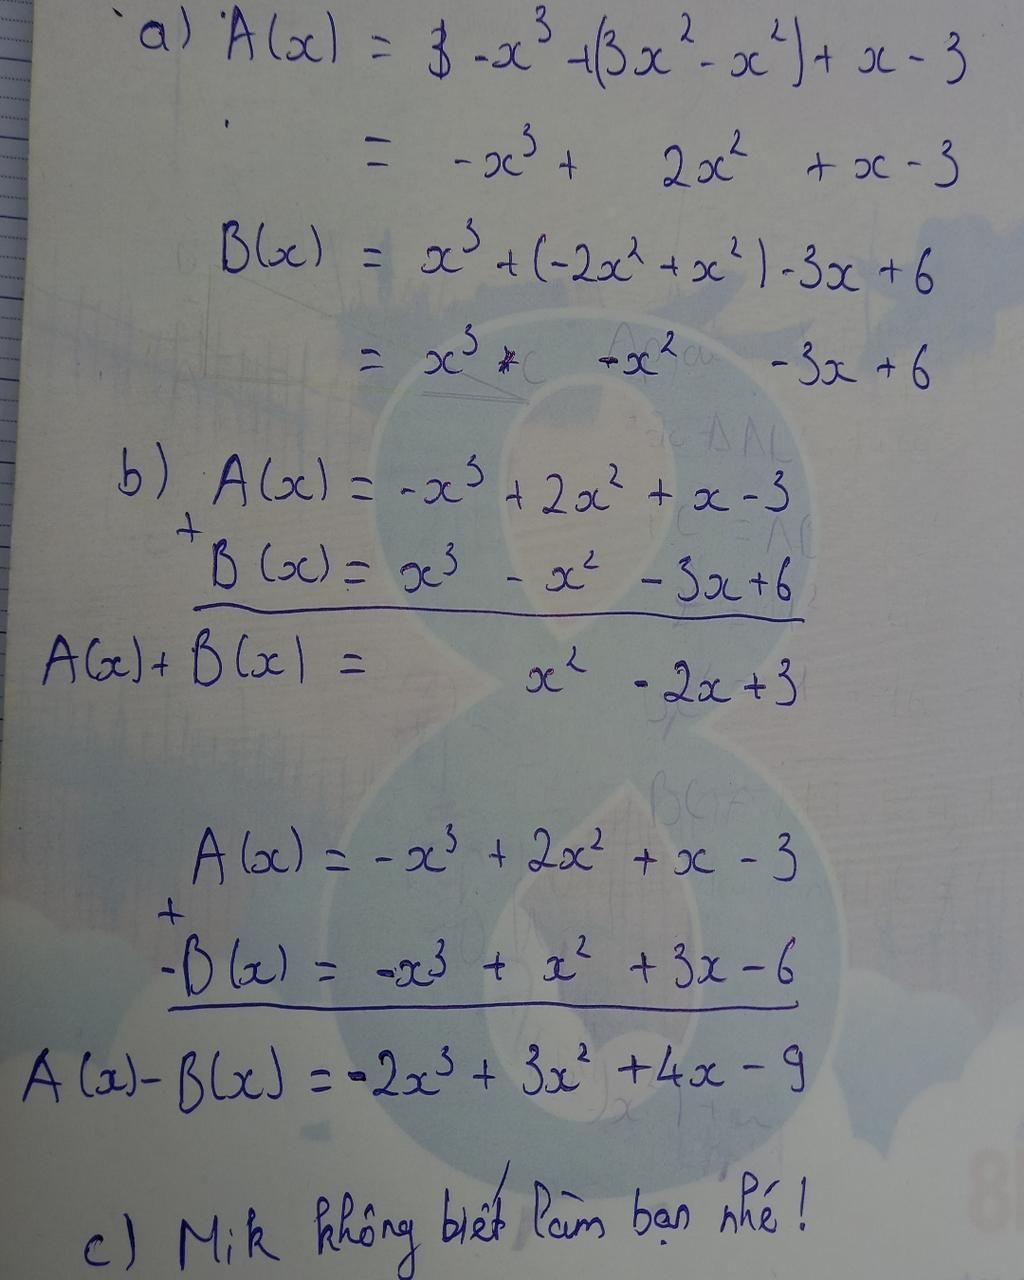 a) A(x) = -x³ + (3x² - x²) + x - 3
= -x³ + 2x² + x - 3
B(x) = x³ + (-2x² + x²) - 3x + 6
= x³ - x² - 3x + 6
b) A(x) = -x³ + 2x² + x - 3
+
B(x) = x³ - x² - 3x + 6
A(x) + B(x) = x² - 2x + 3
A(x) = -x³ + 2x² + x - 3
+
-B(x) = -x³ + x² + 3x - 6
A(x) - B(x) = -2x³ + 3x² + 4x - 9
c) Mik không biết làm bạn nhé!